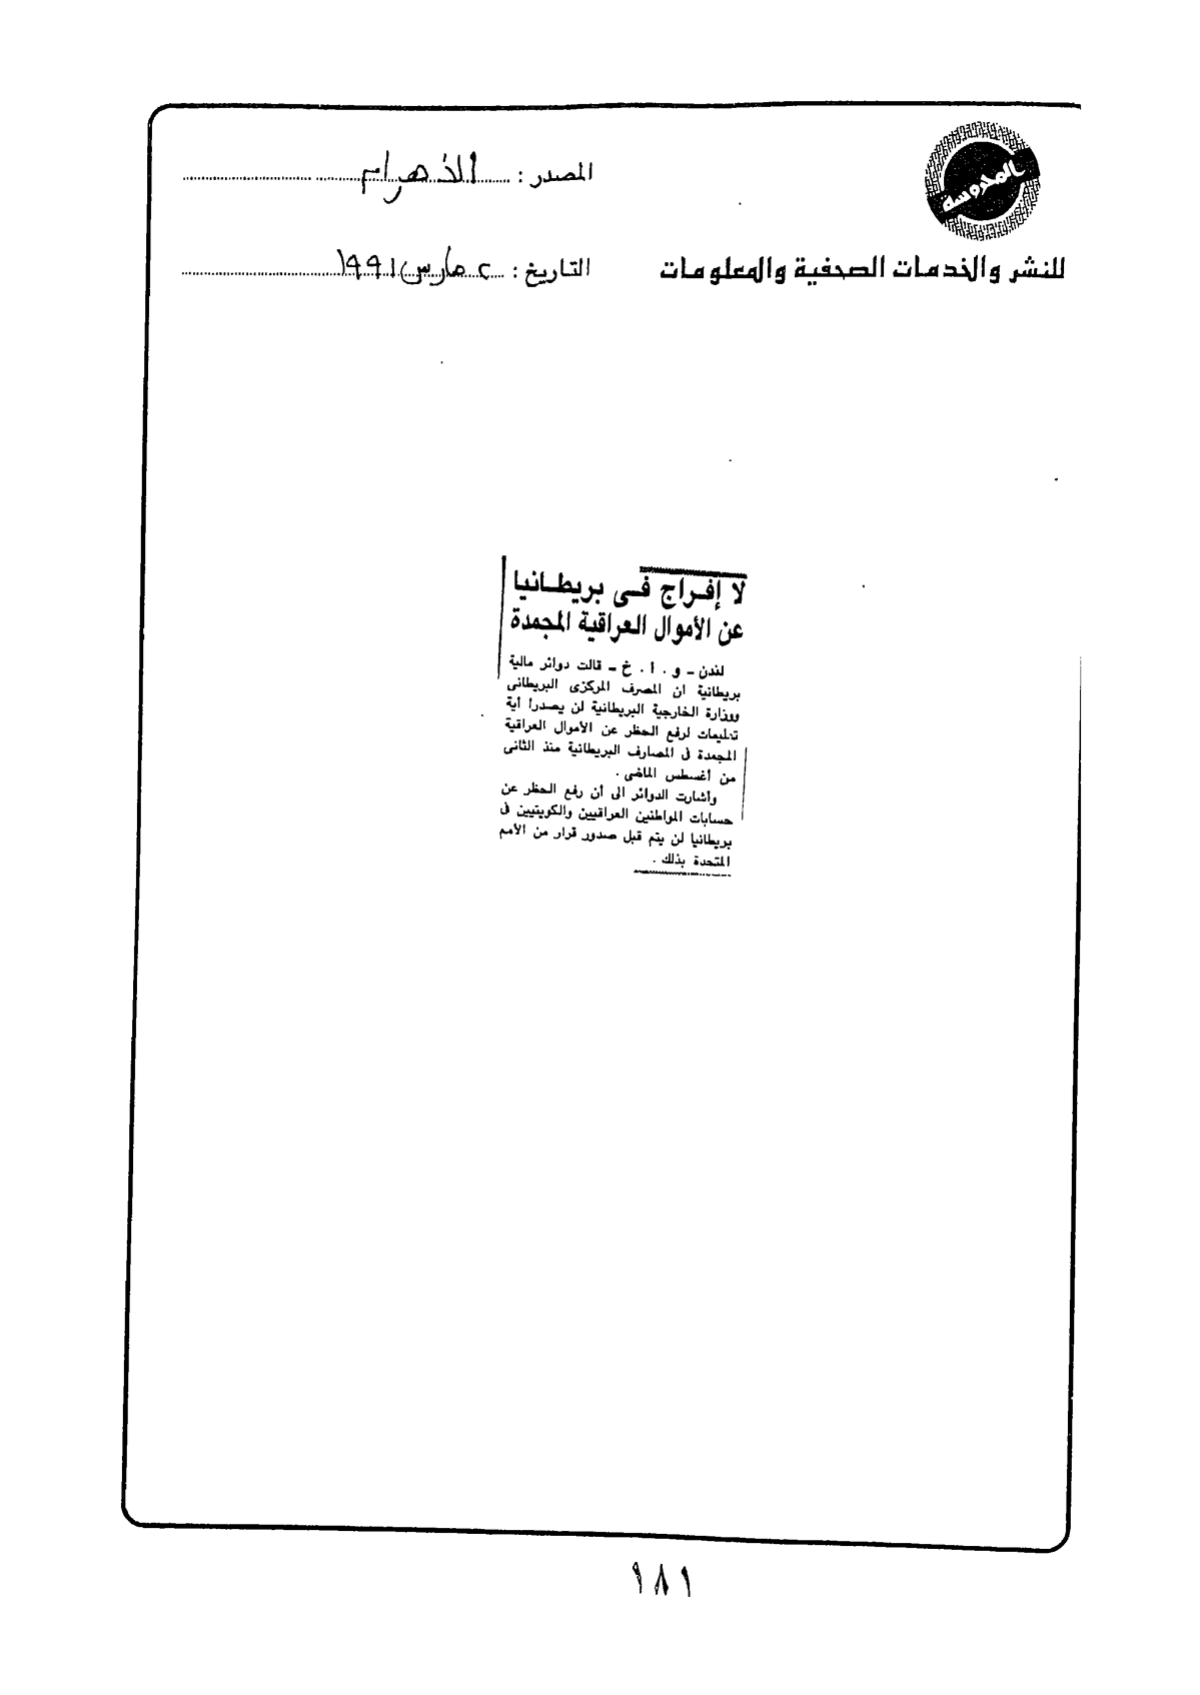 المحروسة
المصدر : الأهرام
للنشر والخدمات الصحفية والمعلومات
التاريخ : ٢ مارس ١٩٩١
لا إفراج فى بريطانيا
عن الأموال العراقية المجمدة
لندن - و . أ . خ - قالت دوائر مالية
بريطانية ان المصرف المركزى البريطانى
ووزارة الخارجية البريطانية لن يصدرا أية
تعليمات لرفع الحظر عن الأموال العراقية
المجمدة فى المصارف البريطانية منذ الثانى
من أغسطس الماضى .
وأشارت الدوائر الى أن رفع الحظر عن
حسابات المواطنين العراقيين والكويتيين فى
بريطانيا لن يتم قبل صدور قرار من الأمم
المتحدة بذلك .
١٨١